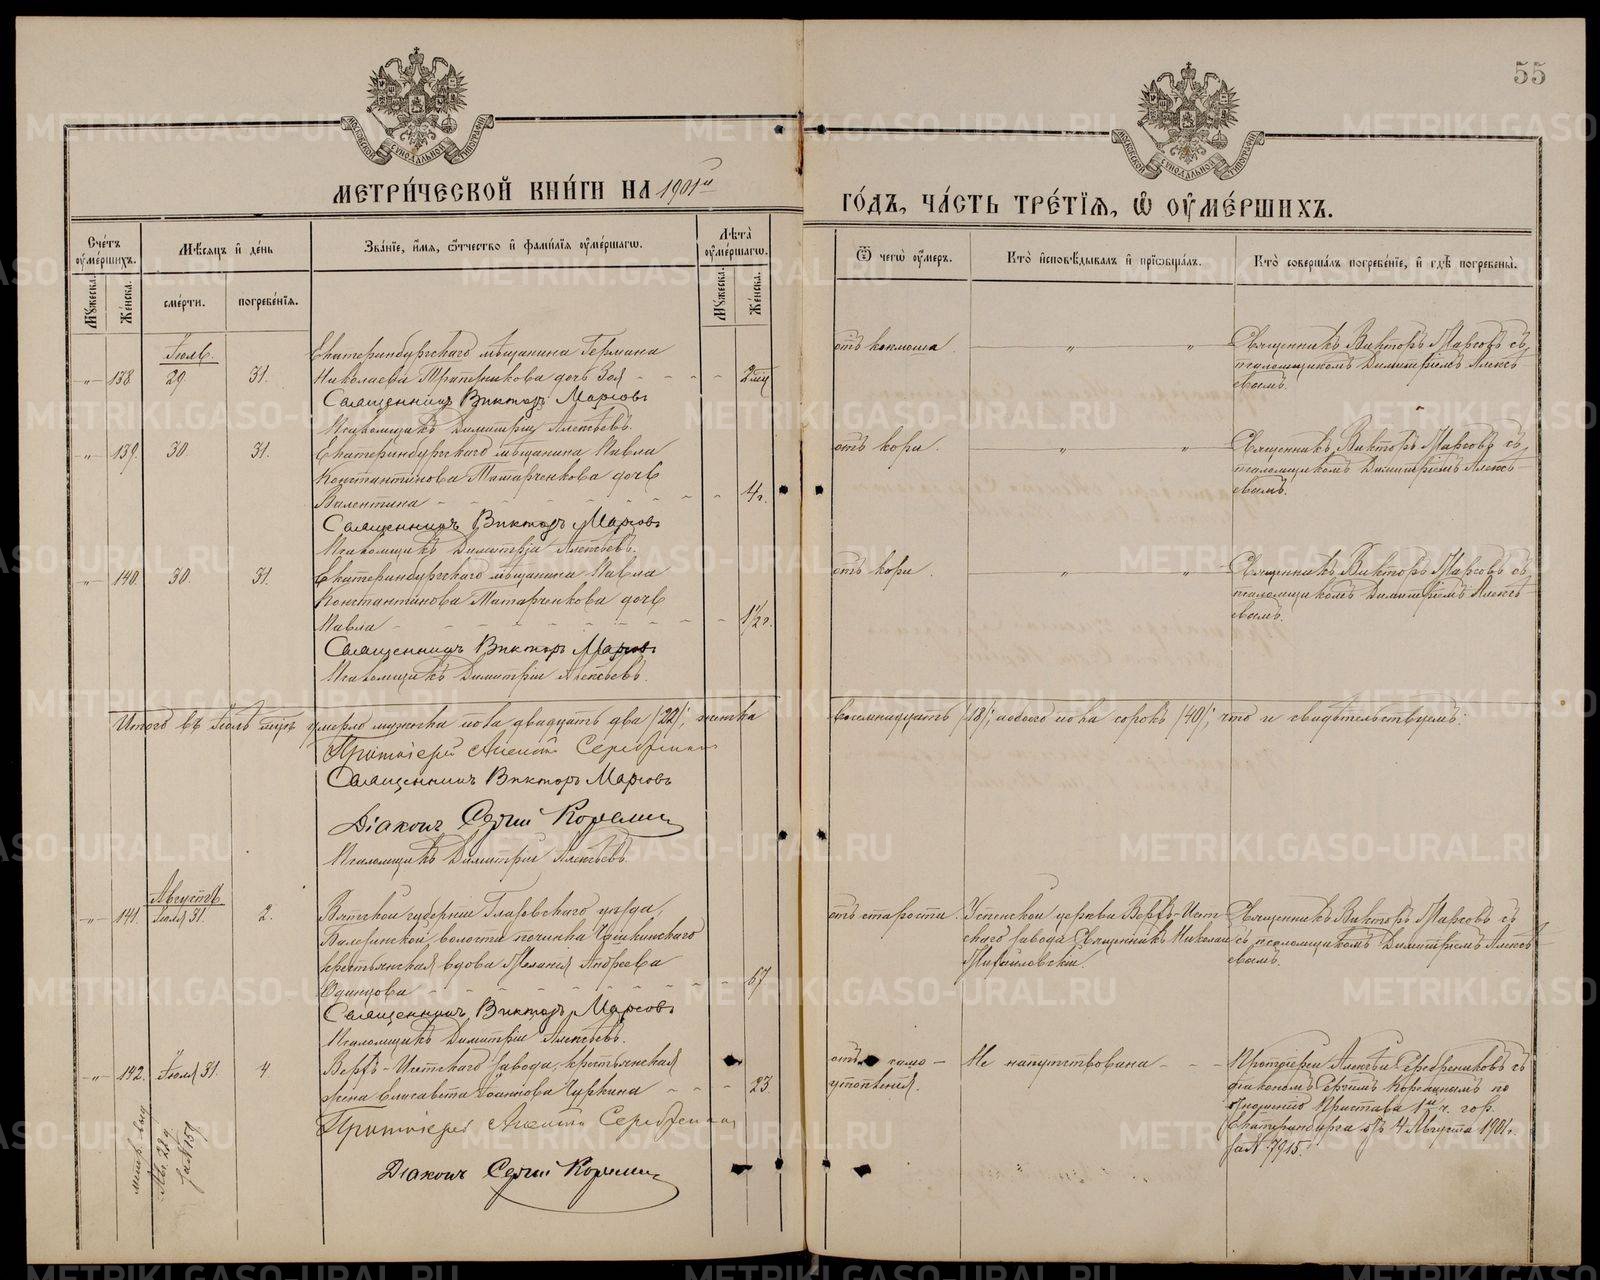 55
МЕТРИ́ЧЕСКОЙ КНИ́ГИ НА 1901й ГО́ДЪ, ЧА́СТЬ ТРЕ́ТІѦ, Ѡ ОУ҆МЕ́РШИХЪ.
МОСКОВСКОЙ СѴНОДАЛЬНОЙ ТИПОГРАФІИ
МОСКОВСКОЙ СѴНОДАЛЬНОЙ ТИПОГРАФІИ
Сче́тъ оу҆ме́ршихъ.
Мꙋ́жеска.
Же́нска.
Мѣ́сѧцъ и҆ де́нь
сме́рти.
погребе́нїѧ.
Зва́нїе, и҆́мѧ, ѻ҆́тчество и҆ фами́лїѧ оу҆ме́ршагѡ.
Лѣ́та оу҆ме́ршагѡ.
Мꙋ́жеска.
Же́нска.
Ѿ чегѡ̀ оу҆́меръ.
Кто̀ и҆сповѣ́дывалъ и҆ прїѡбща́лъ.
Кто̀ соверша́лъ погребе́нїе, и҆ гдѣ̀ погребены̀.
Іюль.
-„- 138 29 31.
Екатеринбургскаго мѣщанина Германа
Николаева дочь Зоя - - - - 2 мц
Священникъ Викторъ Марсовъ
Псаломщикъ Димитрій Алексѣевъ.
отъ коклюша. „ „
Священникъ Викторъ Марсовъ съ
псаломщикомъ Димитріемъ Алексѣ-
евымъ.
-„- 139. 30. 31.
Екатеринбургскаго мѣщанина Павла
Константинова Матарченкова дочь
Валентина - - - - 4 г.
Священникъ Викторъ Марсовъ
Псаломщикъ Димитрій Алексѣевъ.
отъ кори. „ „
Священникъ Викторъ Марсовъ съ
псаломщикомъ Димитріемъ Алексѣ-
евымъ.
-„- 140. 30. 31.
Екатеринбургскаго мѣщанина Павла
Константинова Матарченкова дочь
Павла - - - - 1½ г.
Священникъ Викторъ Марсовъ
Псаломщикъ Димитрій Алексѣевъ.
отъ кори. „ „
Священникъ Викторъ Марсовъ съ
псаломщикомъ Димитріемъ Алексѣ-
евымъ.
Итого въ Іюлѣ мцѣ умерло мужска пола двадцать два /22/; женска восемнадцать /18/; обоего пола сорокъ /40/; что и свидѣтельствуемъ:
Протоіерей Алексій Серебренниковъ
Священникъ Викторъ Марсовъ
Діаконъ Сергій Корелинъ
Псаломщикъ Димитрій Алексѣевъ
Августъ
-„- 141. Іюля 31. 2.
Вятской губерніи Глазовскаго уѣзда,
волости починка
крестьянская вдова Меланія Андреева
Одинцова - - - - 67
Священникъ Викторъ Марсовъ
Псаломщикъ Димитрій Алексѣевъ.
отъ старости.
Успенской церкви Верхъ-Исет-
скаго завода Священникъ Николай
Михайловскій.
Священникъ Викторъ Марсовъ
съ псаломщикомъ Димитріемъ Алексѣ-
евымъ.
-„- 142. Іюля 31. 4
Верхъ-Исетскаго завода, крестьянская
жена Елисавета Іоаннова Чуркина - - - 23
Протоіерей Алексій Серебренниковъ
Діаконъ Сергій Корелинъ
отъ само-
утопленія.
Не напутствована - - -
Протоіерей Алексѣй Серебренниковъ съ
діакономъ Сергіемъ Корелинымъ по
отношенію Пристава 1й ч. гор.
Екатеринбурга отъ 4 Августа 1901 г.
за № 7915.
метр. выд
Авг. 22 д.
за № 157
METRIKI.GASO-URAL.RU